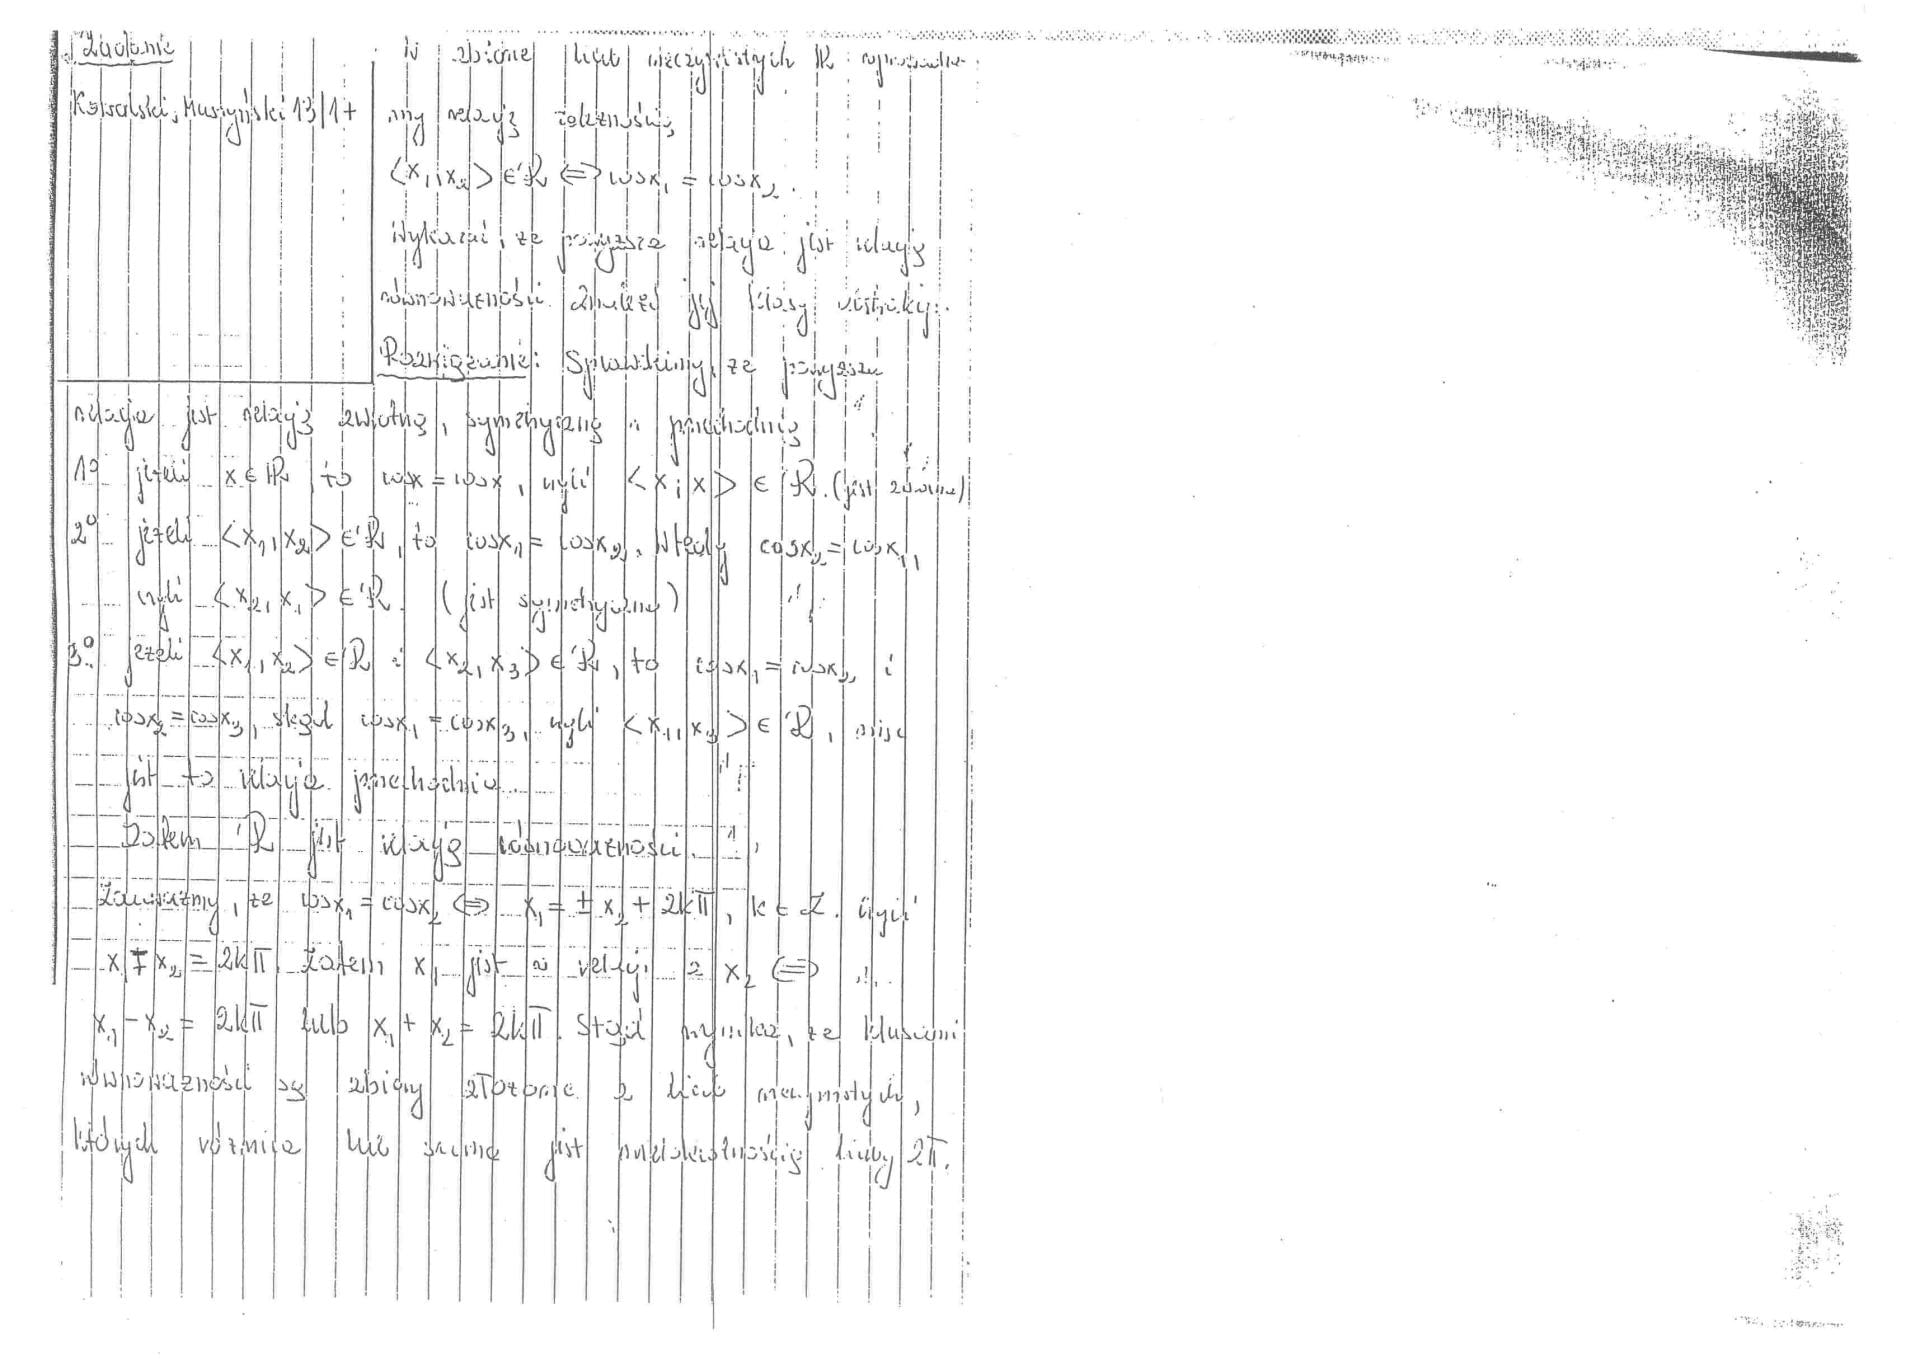 Zadanie
Kowalski, Muszyński 13/17
W zbiorze liczb rzeczywistych ℝ wprowadza-
my relację zależnością
<x₁, x₂> ∈ ℛ ⇔ cosx₁ = cosx₂.
Wykazać, że powyższa relacja jest relacją
równoważności. Znaleźć jej klasy abstrakcji.
Rozwiązanie: Sprawdzimy, że powyższa
relacja jest relacją zwrotną, symetryczną i przechodnią
1° jeżeli x ∈ ℝ, to cosx = cosx, czyli <x; x> ∈ ℛ. (jest zwrotna)
2° jeżeli <x₁, x₂> ∈ ℛ, to cosx₁ = cosx₂. Wtedy cosx₂ = cosx₁,
czyli <x₂, x₁> ∈ ℛ. (jest symetryczna)
3° jeżeli <x₁, x₂> ∈ ℛ i <x₂, x₃> ∈ ℛ, to cosx₁ = cosx₂ i
cosx₂ = cosx₃, skąd cosx₁ = cosx₃, czyli <x₁, x₃> ∈ ℛ, więc
jest to relacja przechodnia.
Zatem ℛ jest relacją równoważności.
Zauważmy, że cosx₁ = cosx₂ ⇔ x₁ = ± x₂ + 2kΠ, k ∈ Z. Czyli
x₁ ∓ x₂ = 2kΠ. Zatem x₁ jest w relacji z x₂ ⇔
x₁ - x₂ = 2kΠ lub x₁ + x₂ = 2kΠ. Stąd wynika, że klasami
równoważności są zbiory złożone z liczb rzeczywistych,
których różnica lub suma jest wielokrotnością liczby 2Π.